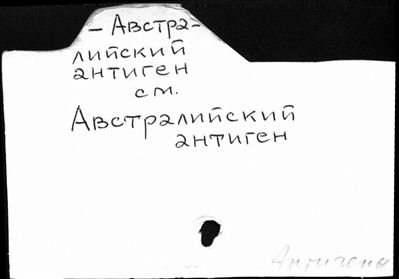 – Австра-
лийский
антиген
см.
Австралийский
антиген
Антигены